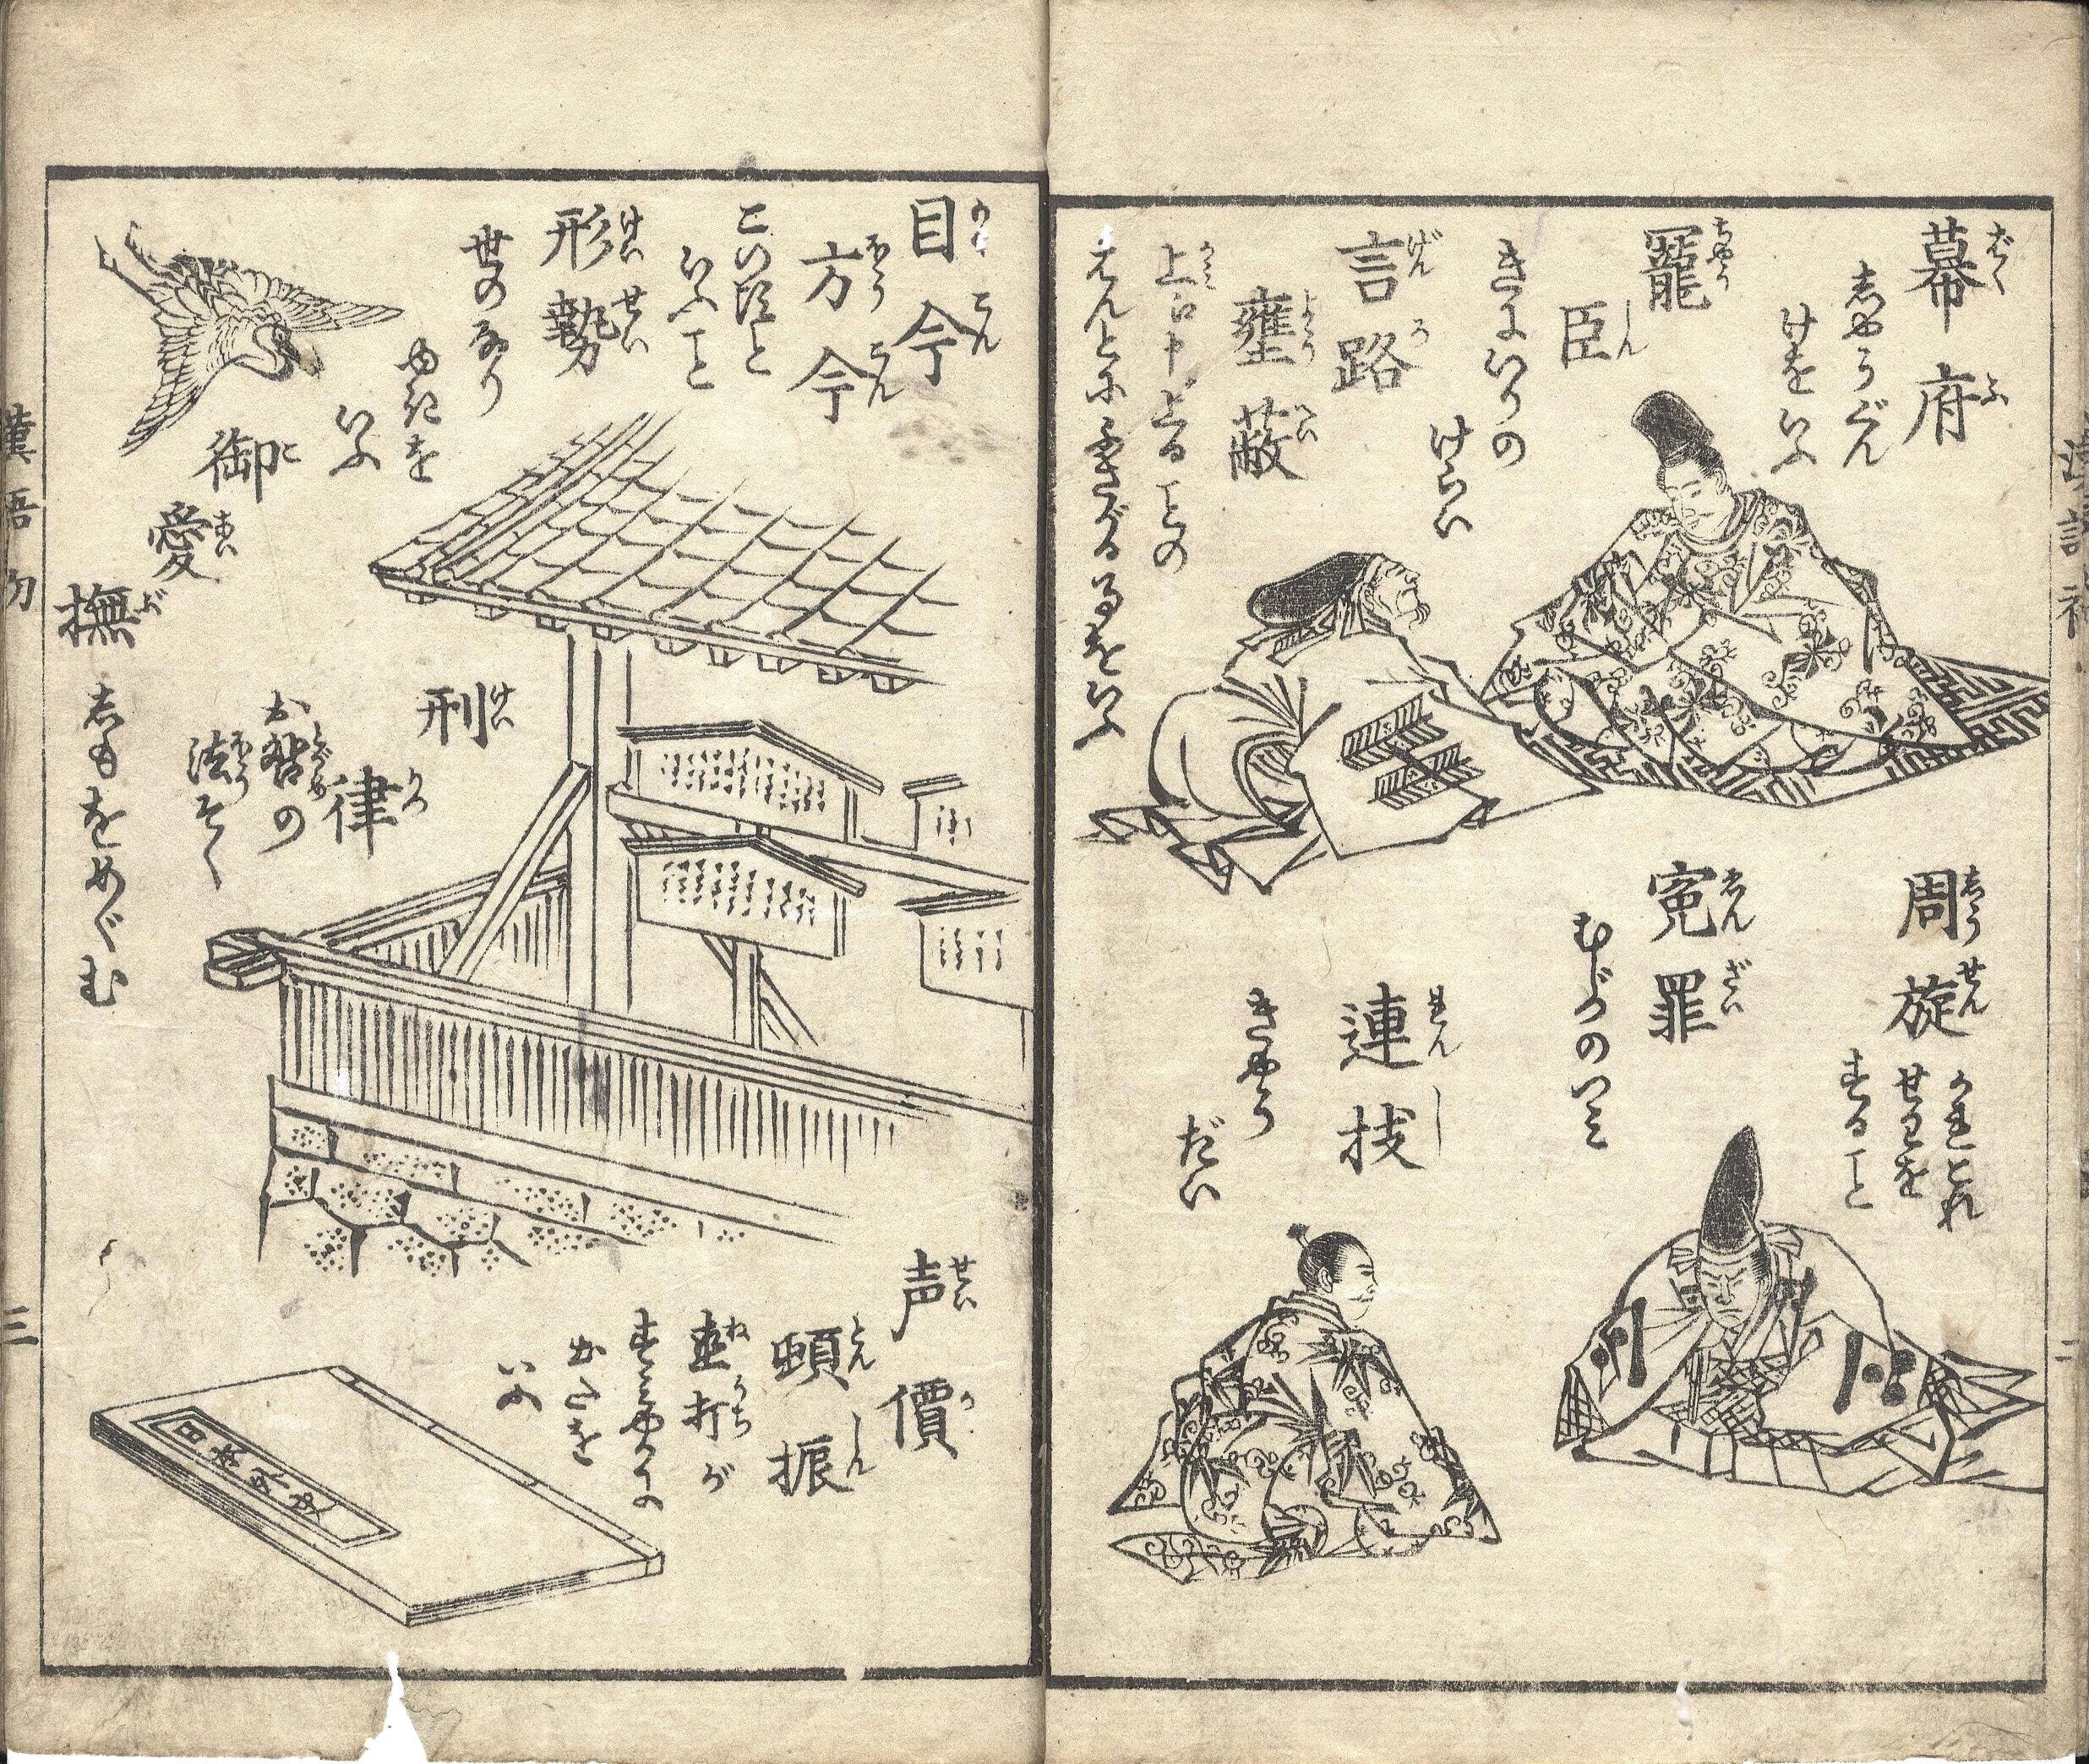 幕府 ばくふ
志やうぐん
けをいふ
寵臣 ちやうしん
きにいりの
けらい
言路 げんろ
壅蔽 ようへい
上江申上る ことの
周旋 しうせん
かれこれ
せわを
する こと
冤罪 ゑんざい
むじつのつミ
連技 れんし
きやう
だい
目今 もくこん
方今 ほうこん
いふ こと
形勢 けいせい
世のなり
ゆきを
いふ
御 ご
愛 あい
撫 ぶ
志もをめぐむ
刑 けい
律 りつ
お咎の とがめ
法そく ほう
声價 せいか
頓振 とんしん
直打が ねうち
いふ
漢語
三